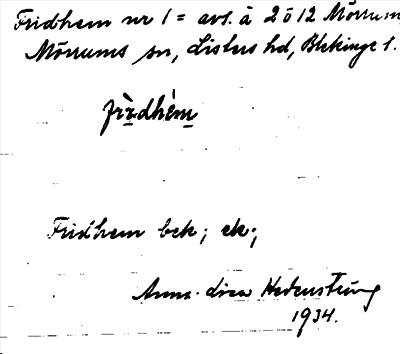 Fridhem nr 1 = avs. å 2 ö 12 Mörrum
Mörrums sn, Listers hd, Blekinge l.
frìdhém
Fridhem bek; ek;
Anna-Lisa Hedenstierna
1934.